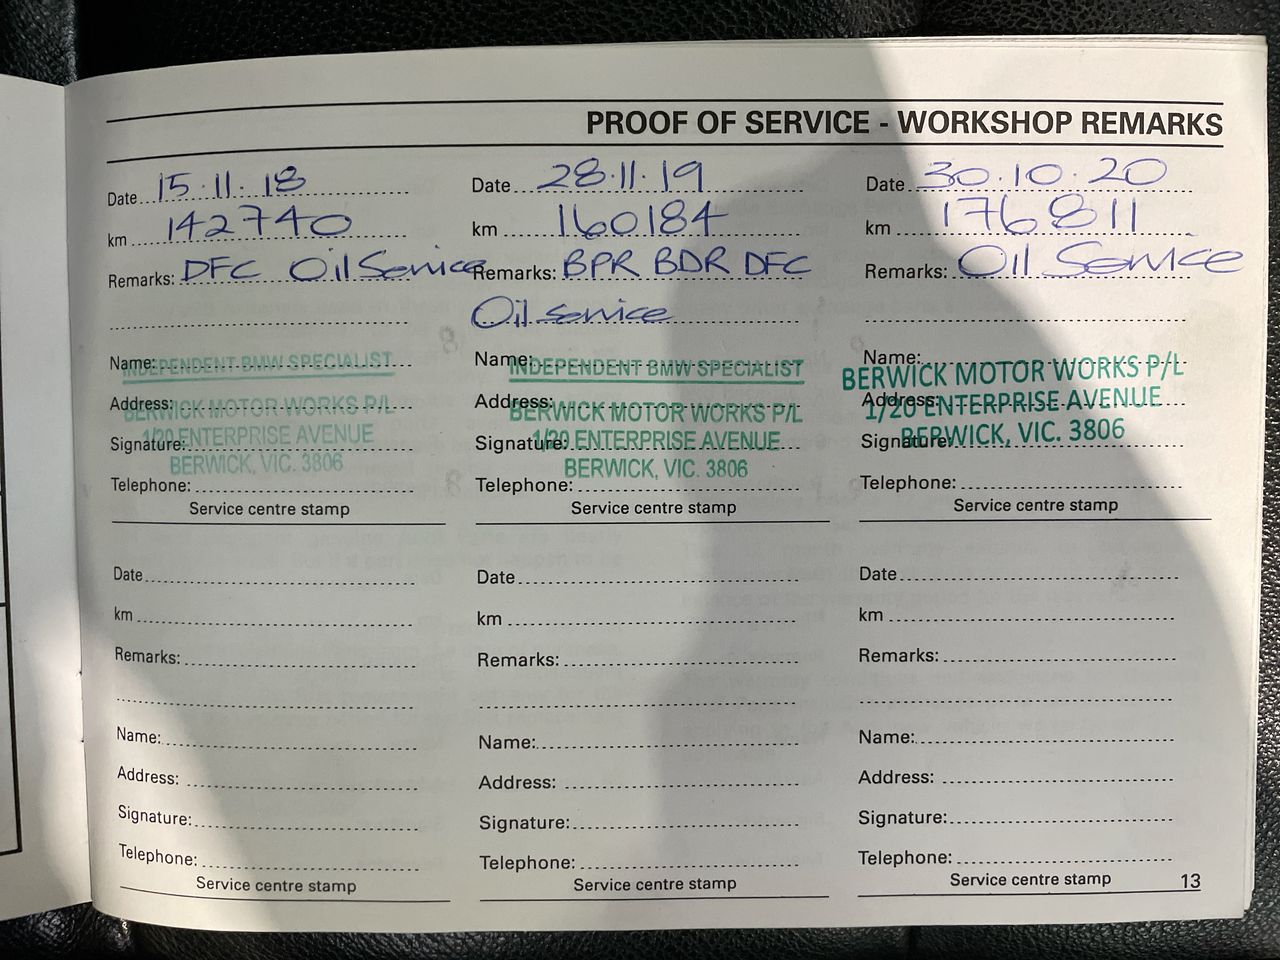 PROOF OF SERVICE - WORKSHOP REMARKS
Date 15.11.18
km 142740
Remarks: DFC Oil Service
Name:
INDEPENDENT BMW SPECIALIST
Address:
BERWICK MOTOR WORKS P/L
Signature:
1/20 ENTERPRISE AVENUE
BERWICK, VIC. 3806
Telephone:
Service centre stamp
Date 28.11.19
km 160184
Remarks: BPR BDR DFC
Oil service
Name:
INDEPENDENT BMW SPECIALIST
Address:
BERWICK MOTOR WORKS P/L
Signature:
1/20 ENTERPRISE AVENUE
BERWICK, VIC. 3806
Telephone:
Service centre stamp
Date 30.10.20
km 176811
Remarks: Oil Service
Name:
BERWICK MOTOR WORKS P/L
Address:
1/20 ENTERPRISE AVENUE
Signature:
BERWICK, VIC. 3806
Telephone:
Service centre stamp
Date
km
Remarks:
Name:
Address:
Signature:
Telephone:
Service centre stamp
Date
km
Remarks:
Name:
Address:
Signature:
Telephone:
Service centre stamp
Date
km
Remarks:
Name:
Address:
Signature:
Telephone:
Service centre stamp
13